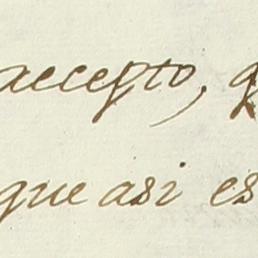 accepto, q
que asi es